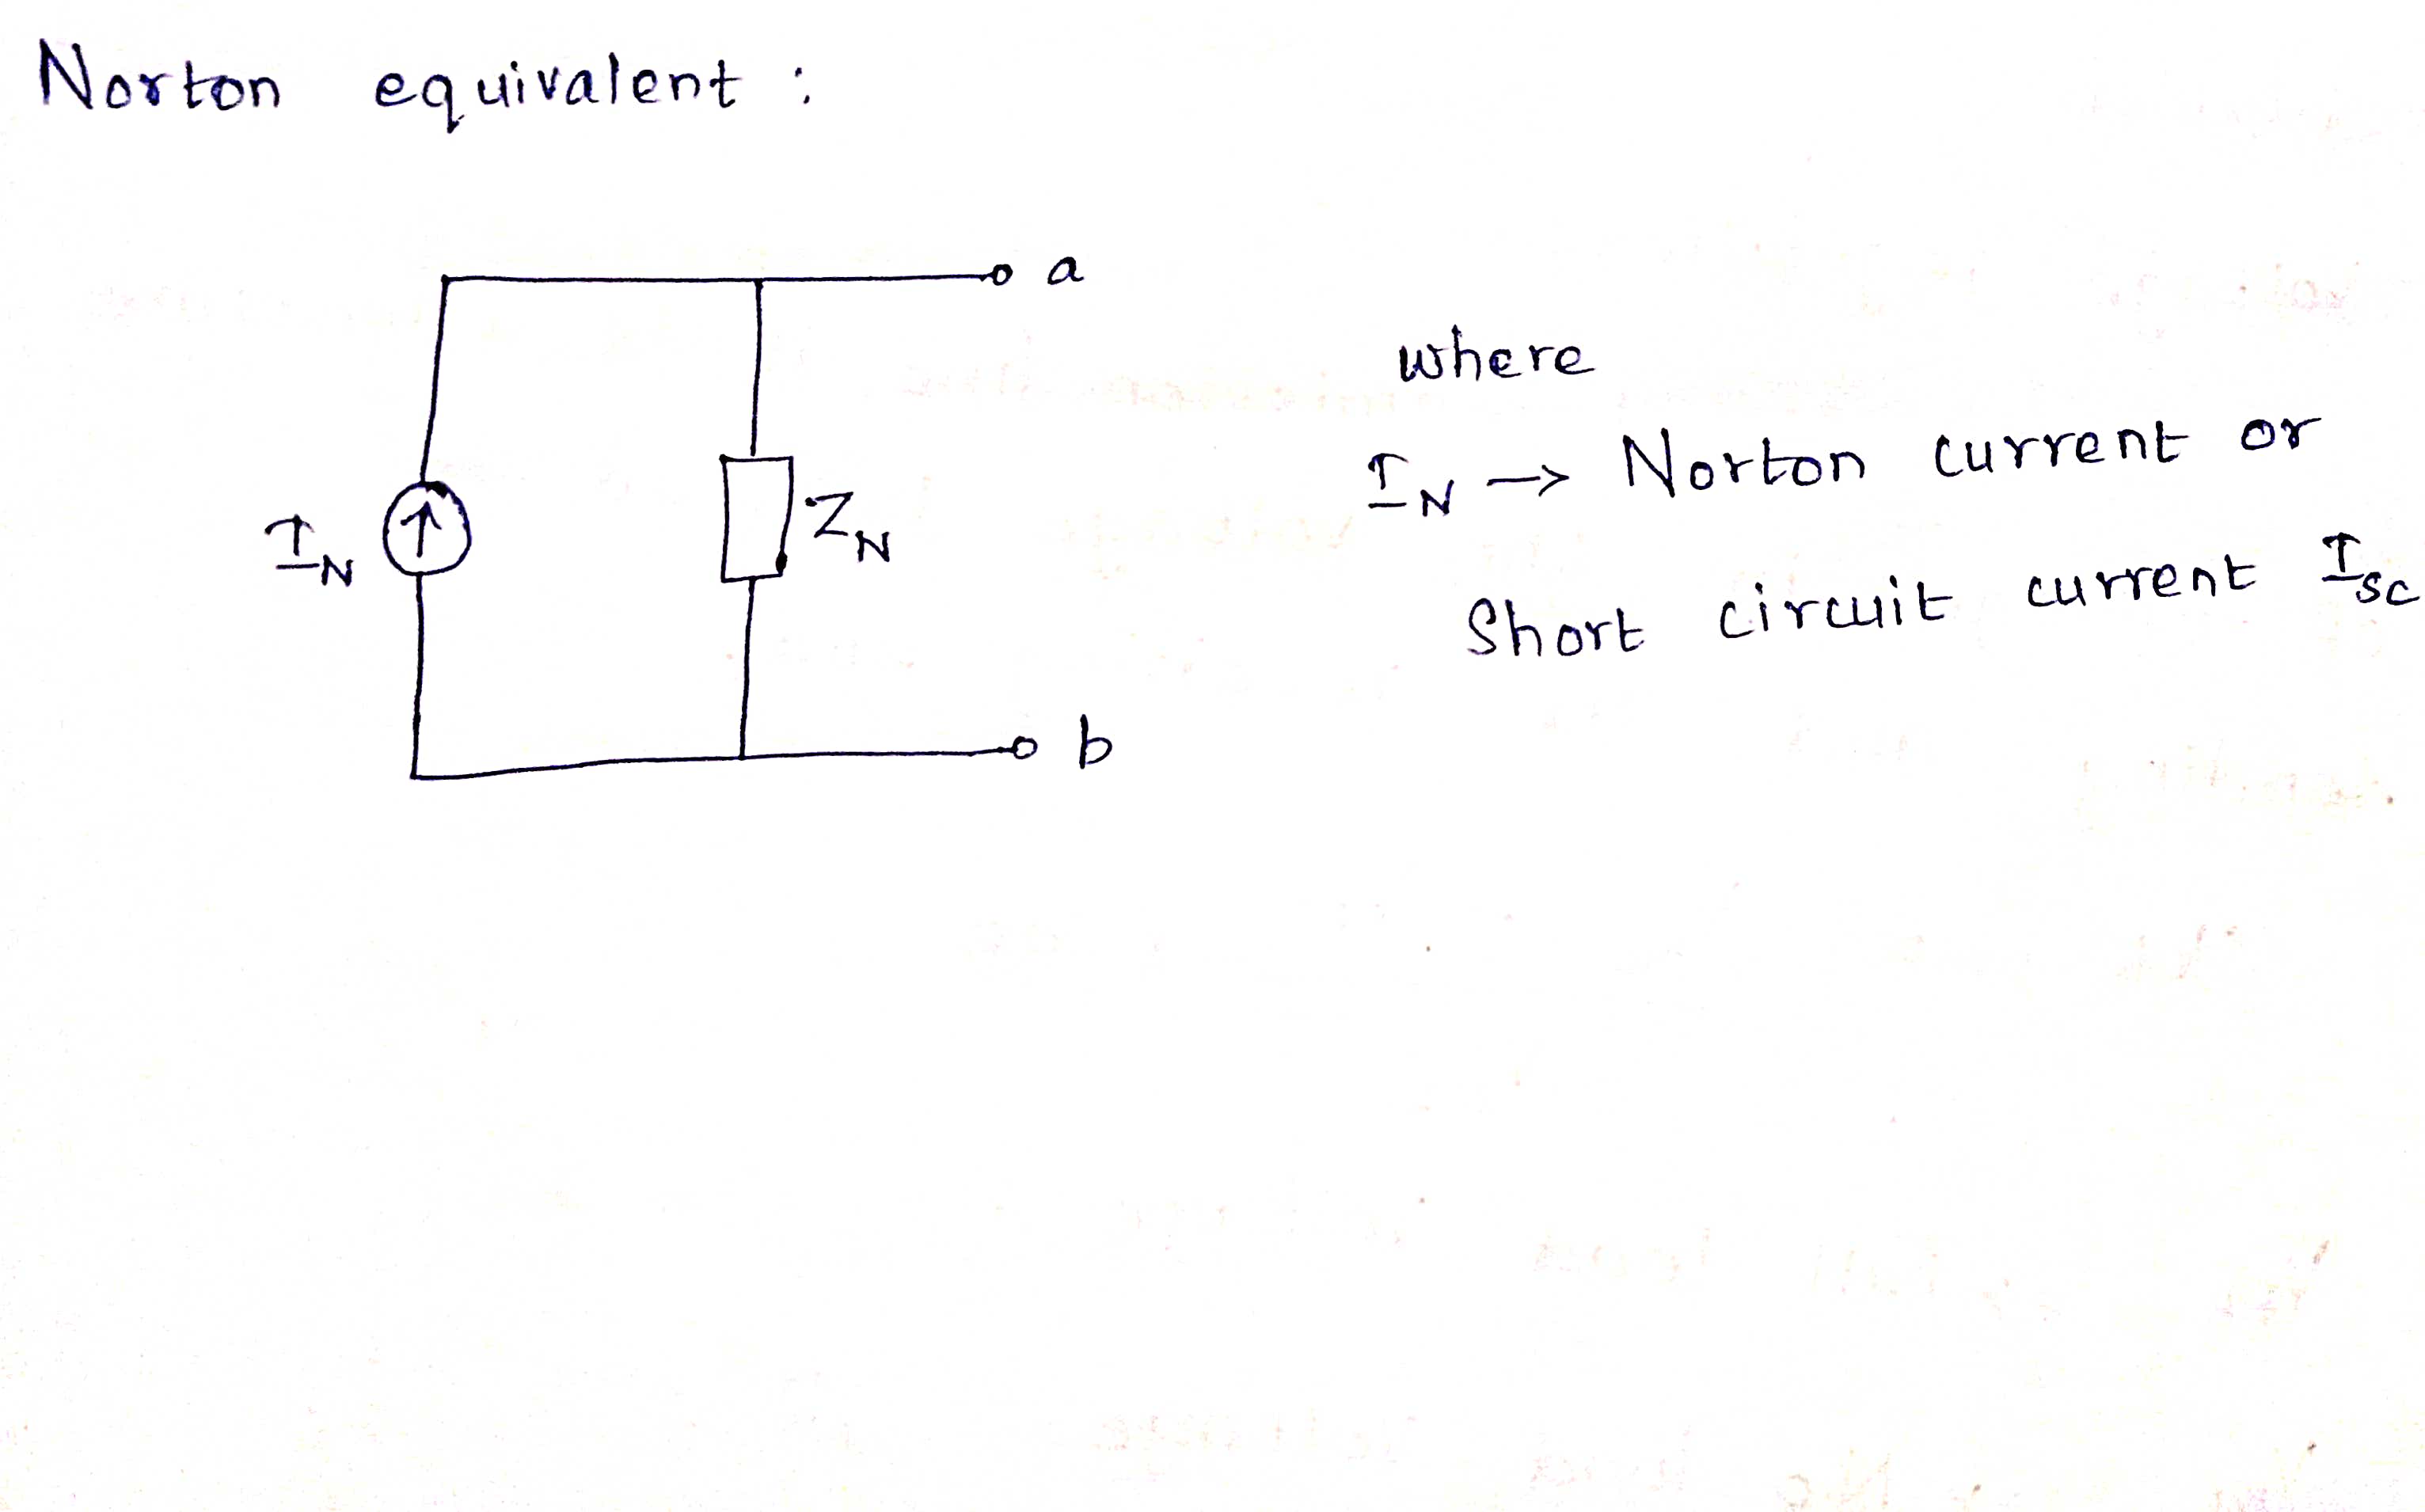 Norton equivalent :
a
where
I_N → Norton current or
I_N
Z_N
Short circuit current I_sc
b